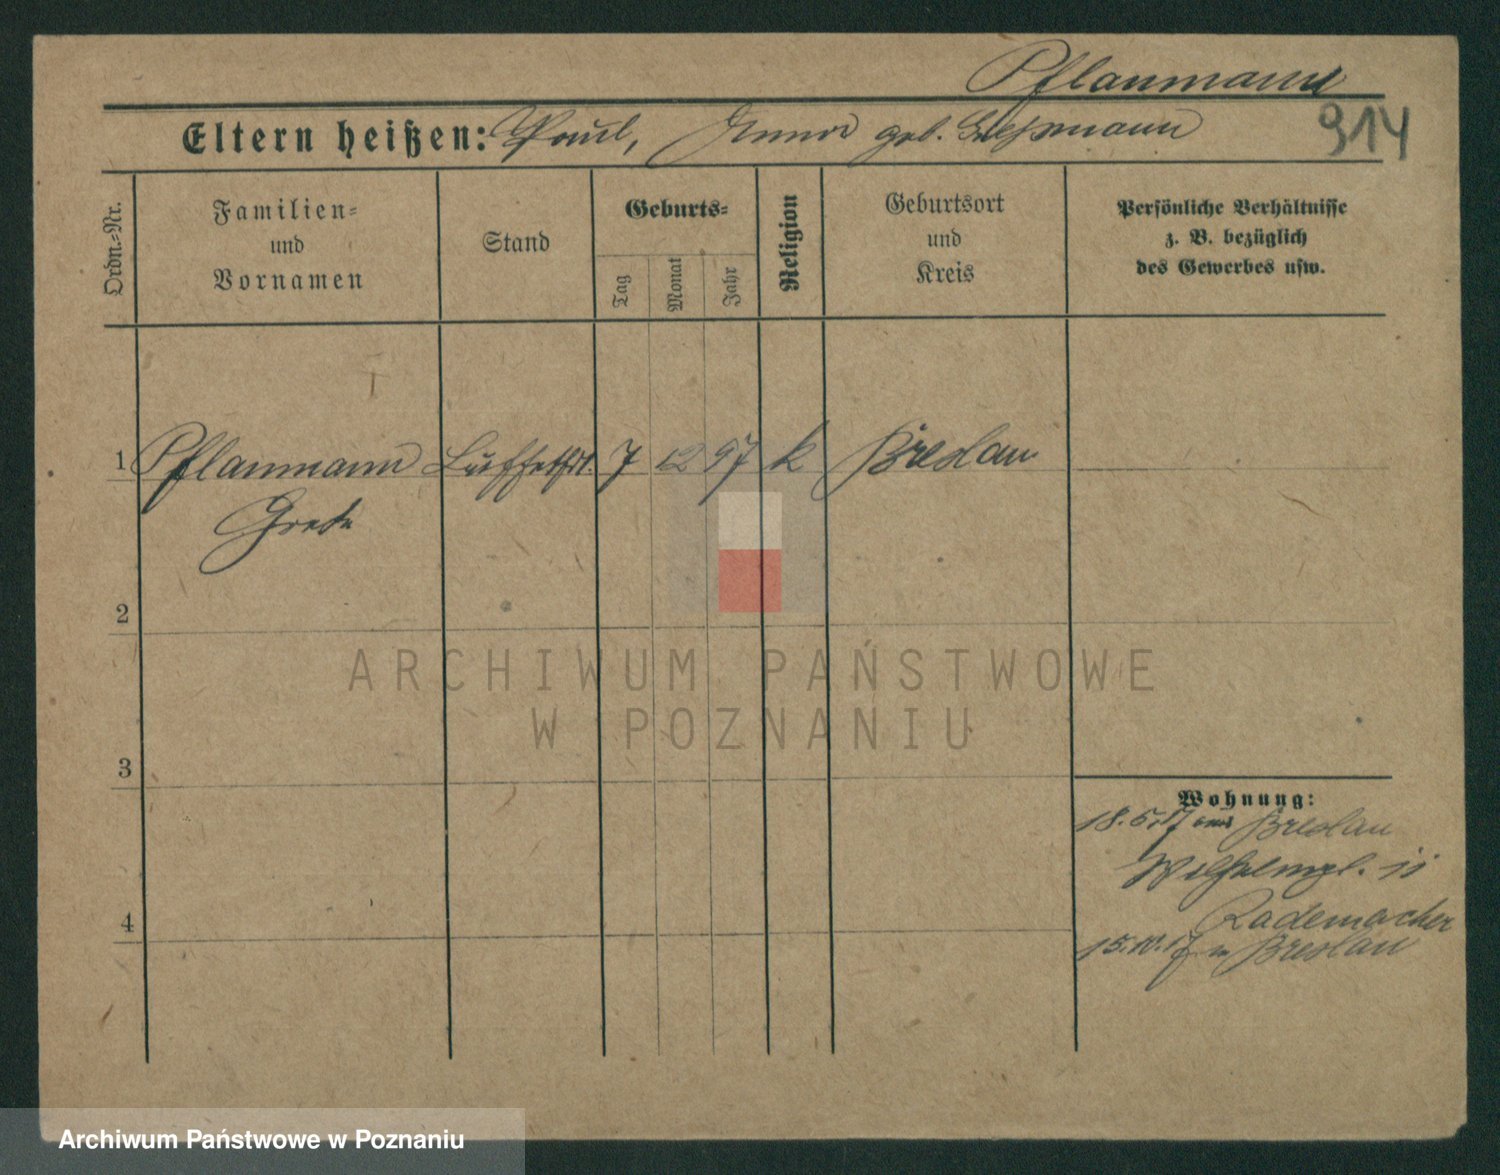 Pflanmann
914
Eltern heißen: Paul, Anna geb.
Ordn.=Nr.
Familien=
und
Vornamen
Stand
Geburts=
Tag
Monat
Jahr
Religion
Geburtsort
und
Kreis
Persönliche Verhältnisse
z. B. bezüglich
des Gewerbes usw.
1 Pflanmann 7 12 97 k Breslau
Grete
2
ARCHIWUM PAŃSTWOWE
W POZNANIU
3
Wohnung:
18.5.17 Breslau
Wilhelmpl. 11
4
Rademacher
15.10.17 Breslau
Archiwum Państwowe w Poznaniu